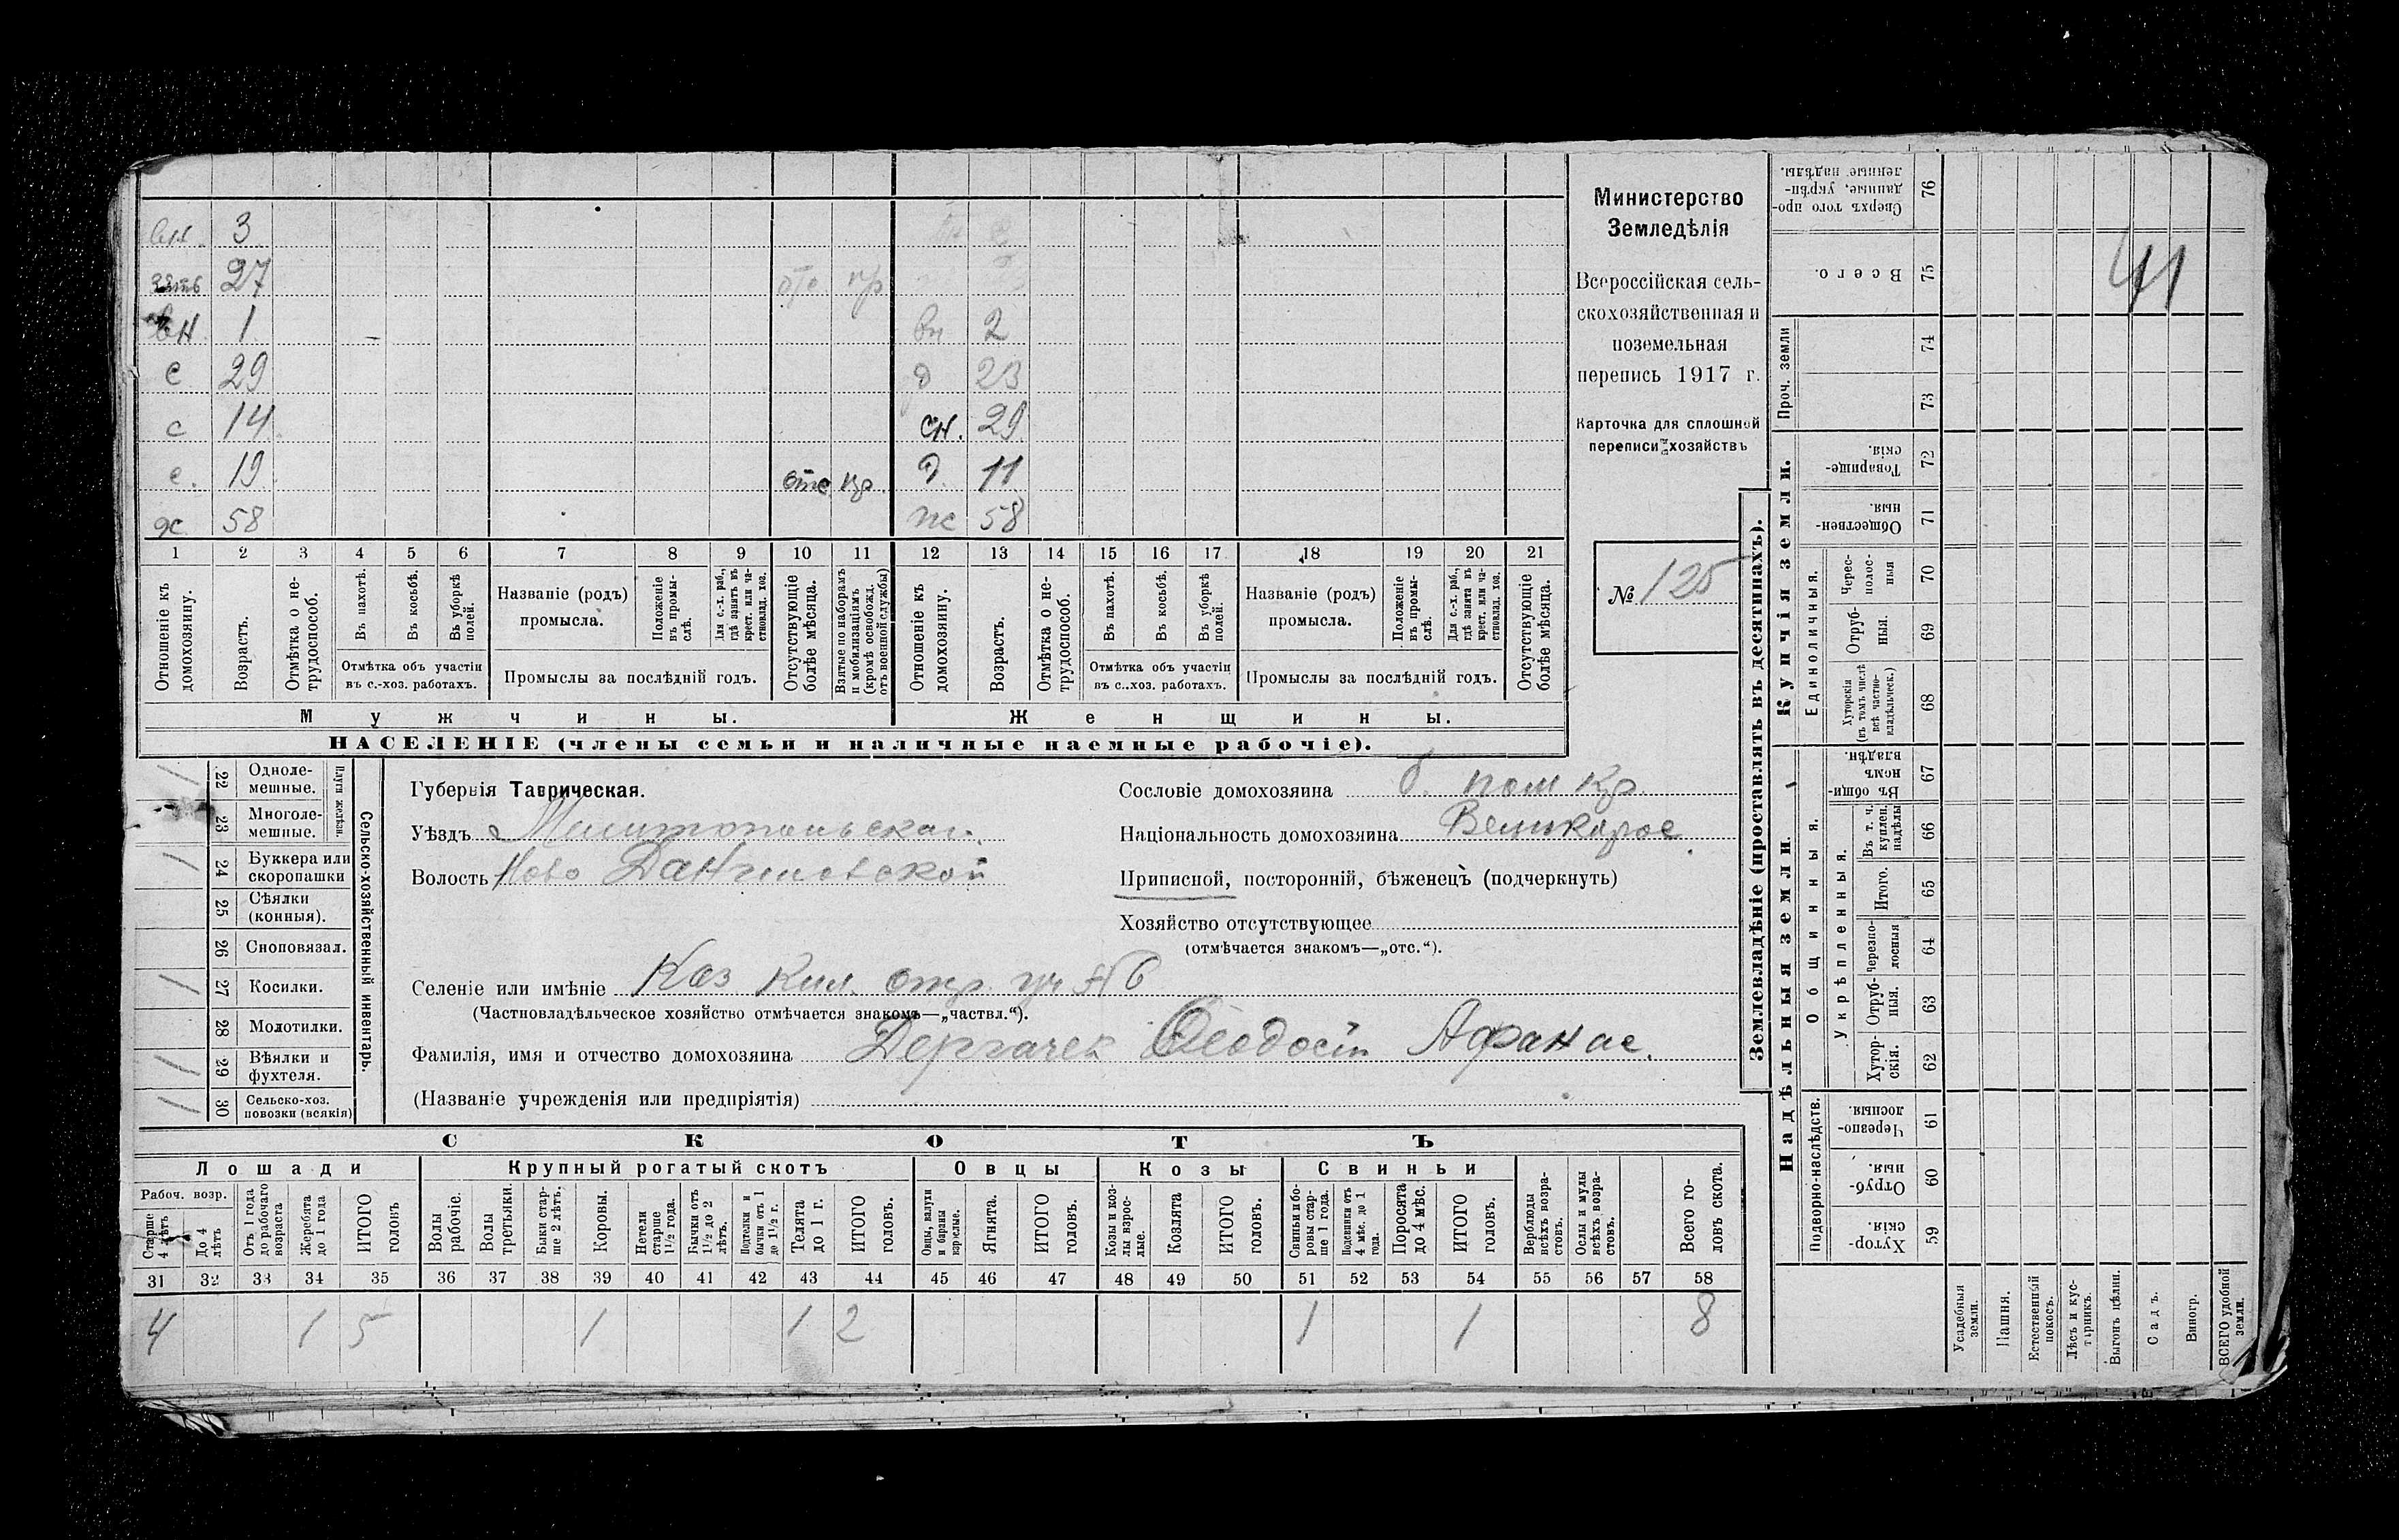 вн. 3
зять 27 отс кр
вн 1 вн 2
с 29 д 23
с 14 сн. 29
с. 19 отс кр. д 11
дх 58 жс 58
1 2 3 4 5 6 7 8 9 10 11 12 13 14 15 16 17 18 19 20 21
Отношеніе къ домохозяину.
Возрастъ.
Отмѣтка о не-трудоспособ.
Въ пахотѣ.
Въ косьбѣ.
Въ уборкѣ полей.
Отмѣтка объ участіи
въ с.-хоз. работахъ.
Названіе (родъ)
промысла.
Положеніе въ промы-слѣ.
Для с.-х. раб., гдѣ занятъ въ крест. или ча-стновлад. хоз.
Промыслы за послѣдній годъ.
Отсутствующіе болѣе мѣсяца.
Взятые по наборамъ и мобилизаціямъ (кромѣ освобожд. отъ военной службы)
Отношеніе къ домохозяину.
Возрастъ.
Отмѣтка о не-трудоспособ.
Въ пахотѣ.
Въ косьбѣ.
Въ уборкѣ полей.
Отмѣтка объ участіи
въ с..хоз. работахъ.
Названіе (родъ)
промысла.
Положеніе въ промы-слѣ.
Для с.-х. раб., гдѣ занята въ крест. или ча-стновлад. хоз.
Промыслы за послѣдній годъ.
Отсутствующіе болѣе мѣсяца.
Мужчины. Женщины.
НАСЕЛЕНІЕ (члены семьи и наличные наемные рабочіе).
Министерство
Земледѣлія
Всероссійская сель-
скохозяйственная и
поземельная
перепись 1917 г.
Карточка для сплошной
переписи хозяйствъ
№ 125
/ 22 Одноле-мешные.
23 Многоле-мешные.
Плуги желѣзн.
/ 24 Буккера или скоропашки
25 Сѣялки (конныя).
26 Сноповязал.
/ 27 Косилки.
28 Молотилки.
/ 29 Вѣялки и фухтеля.
/ 30 Сельско-хоз. повозки (всякія)
Сельско-хозяйственный инвентарь.
Губернія Таврическая.
Уѣздъ Мелитопольскаг.
Волость Ново Даниловской
Сословіе домохозяина б. пом кр.
Національность домохозяина Великорос
Приписной, посторонній, бѣженецъ (подчеркнуть)
Хозяйство отсутствующее
(отмѣчается знакомъ—„отс.“).
Селеніе или имѣніе Каз Кил. отр. уч № 6
(Частновладѣльческое хозяйство отмѣчается знакомъ—„частвл.“).
Фамилія, имя и отчество домохозяина Дергачек Ѳеодосій Афанас.
(Названіе учрежденія или предпріятія)
СКОТЪ
Лошади Крупный рогатый скотъ Овцы Козы Свиньи
Рабоч. возр.
Старше 4 лѣтъ
До 4 лѣтъ
Отъ 1 года до рабочаго возраста
Жеребята до 1 года
ИТОГО головъ
Волы рабочіе.
Волы третьяки.
Быки стар-ше 2 лѣтъ.
Коровы.
Нетели старше 1½ года.
Бычки отъ 1½ до 2 лѣтъ.
Подтелки и бычки отъ 1 до 1½ г.
Телята до 1 г.
ИТОГО головъ.
Овцы, валухи и бараны взрослые.
Ягнята.
ИТОГО головъ.
Козы и коз-лы взрос-лые.
Козлята
ИТОГО головъ.
Свиньи бо-ровы стар-ше 1 года.
Подсвинки отъ 4 мѣс. до 1 года.
Поросята до 4 мѣс.
ИТОГО головъ.
Верблюды всѣхъ возра-стовъ.
Ослы и мулы всѣхъ возра-стовъ.
Всего го-ловъ скота.
31 32 33 34 35 36 37 38 39 40 41 42 43 44 45 46 47 48 49 50 51 52 53 54 55 56 57 58
4 1 5 1 1 2 1 1 8
Землевладѣніе (проставлять въ десятинахъ).
Надѣльныя земли.
Купчія земли.
Проч. земли
Общинныя.
Укрѣпленныя.
Подворно-наслѣдств.
Единоличныя.
Сверхъ того про-данные, укрѣп-ленные надѣлы. 76
Всего. 75
41
74
73
Товарище-скія. 72
Обществен-ныя. 71
Черес-полос-ныя 70
Отруб-ныя. 69
Хуторскія (въ томъ числѣ всѣ частно-владѣльческ.) 68
Въ общи-номъ владѣн. 67
Въ т. ч. куплен. надѣлы 66
Итого. 65
Черезпо-лосныя 64
Отруб-ныя. 63
Хутор-скія. 62
Черезпо-лосныя. 61
Отруб-ныя. 60
Хутор-скія. 59
Усадебныя земли.
Пашня.
Естественный покосъ.
Лѣсъ и кус-тарникъ.
Выгонъ цѣлин.
Садъ.
Виногр.
ВСЕГО удобной земли.